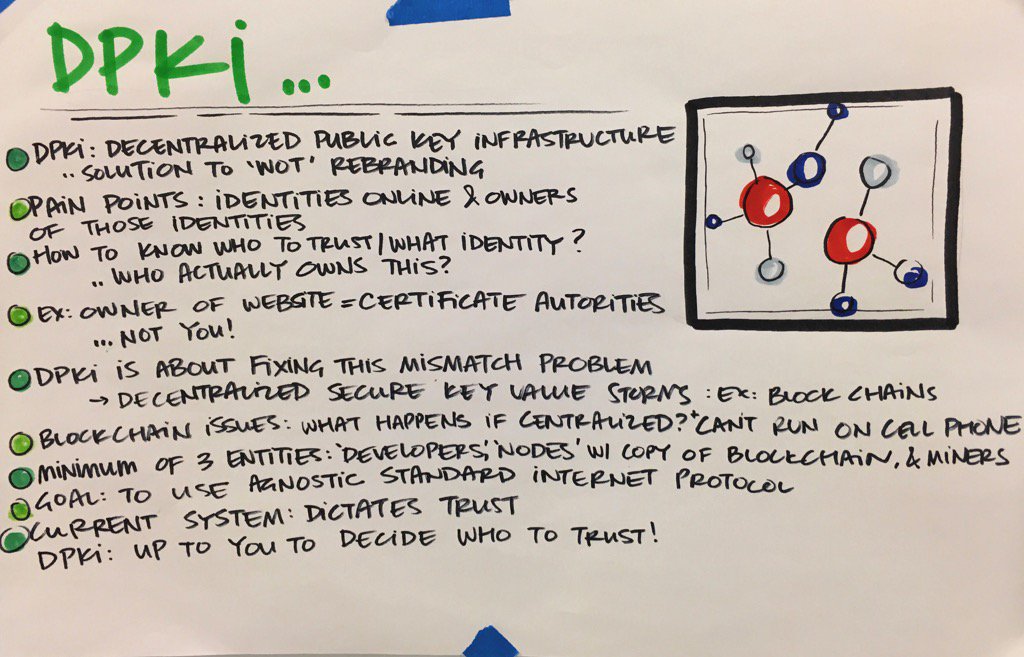 DPKi...
DPKi: DECENTRALIZED PUBLIC KEY INFRASTRUCTURE
.. SOLUTION TO 'WOT' REBRANDING
PAIN POINTS: IDENTITIES ONLINE & OWNERS
OF THOSE IDENTITIES
HOW TO KNOW WHO TO TRUST/WHAT IDENTITY?
.. WHO ACTUALLY OWNS THIS?
EX: OWNER OF WEBSITE = CERTIFICATE AUTORITIES
... NOT YOU!
DPKi IS ABOUT FIXING THIS MISMATCH PROBLEM
→ DECENTRALIZED SECURE KEY VALUE STORMS: EX: BLOCK CHAINS
BLOCKCHAIN ISSUES: WHAT HAPPENS IF CENTRALIZED? + CANT RUN ON CELL PHONE
MINIMUM OF 3 ENTITIES: 'DEVELOPERS', 'NODES' W/ COPY OF BLOCKCHAIN, & MINERS
GOAL: TO USE AGNOSTIC STANDARD INTERNET PROTOCOL
CURRENT SYSTEM: DICTATES TRUST
DPKi: UP TO YOU TO DECIDE WHO TO TRUST!